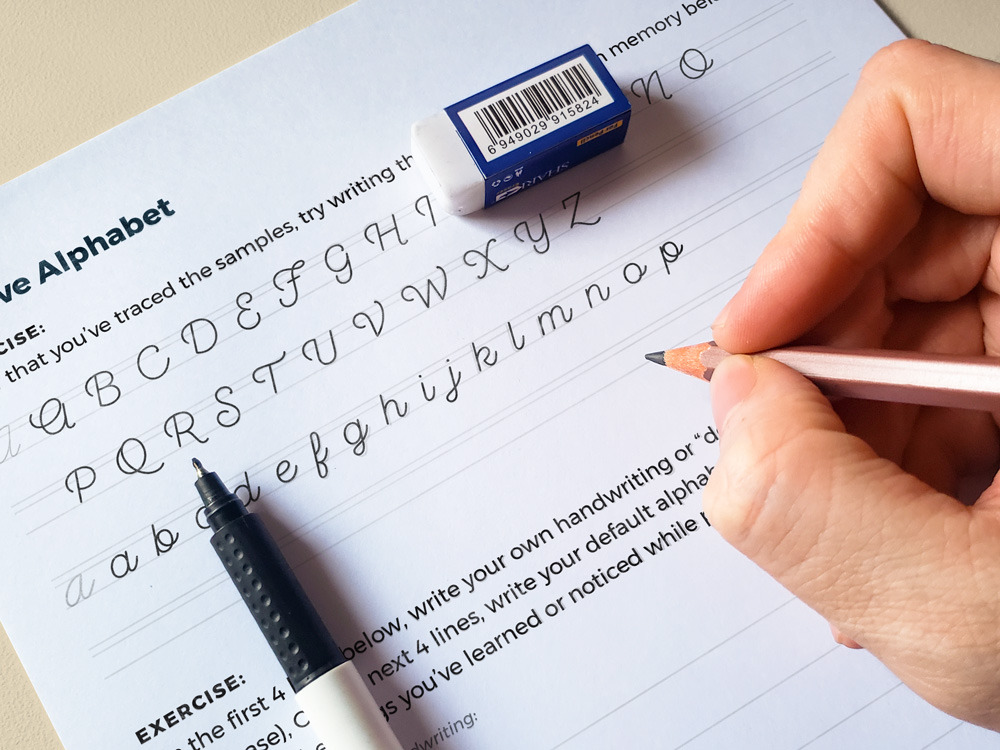 ve Alphabet
CISE:
that you've traced the samples, try writing th n memory bel
a a B C D E F G H I N O
P Q R S T U V W X Y Z
a a b c d e f g h i j k l m n o p
6 949029 915824
EXERCISE:
the first 4 below, write your own handwriting or “d
ase), next 4 lines, write your default alphab
gs you've learned or noticed while
dwriting: